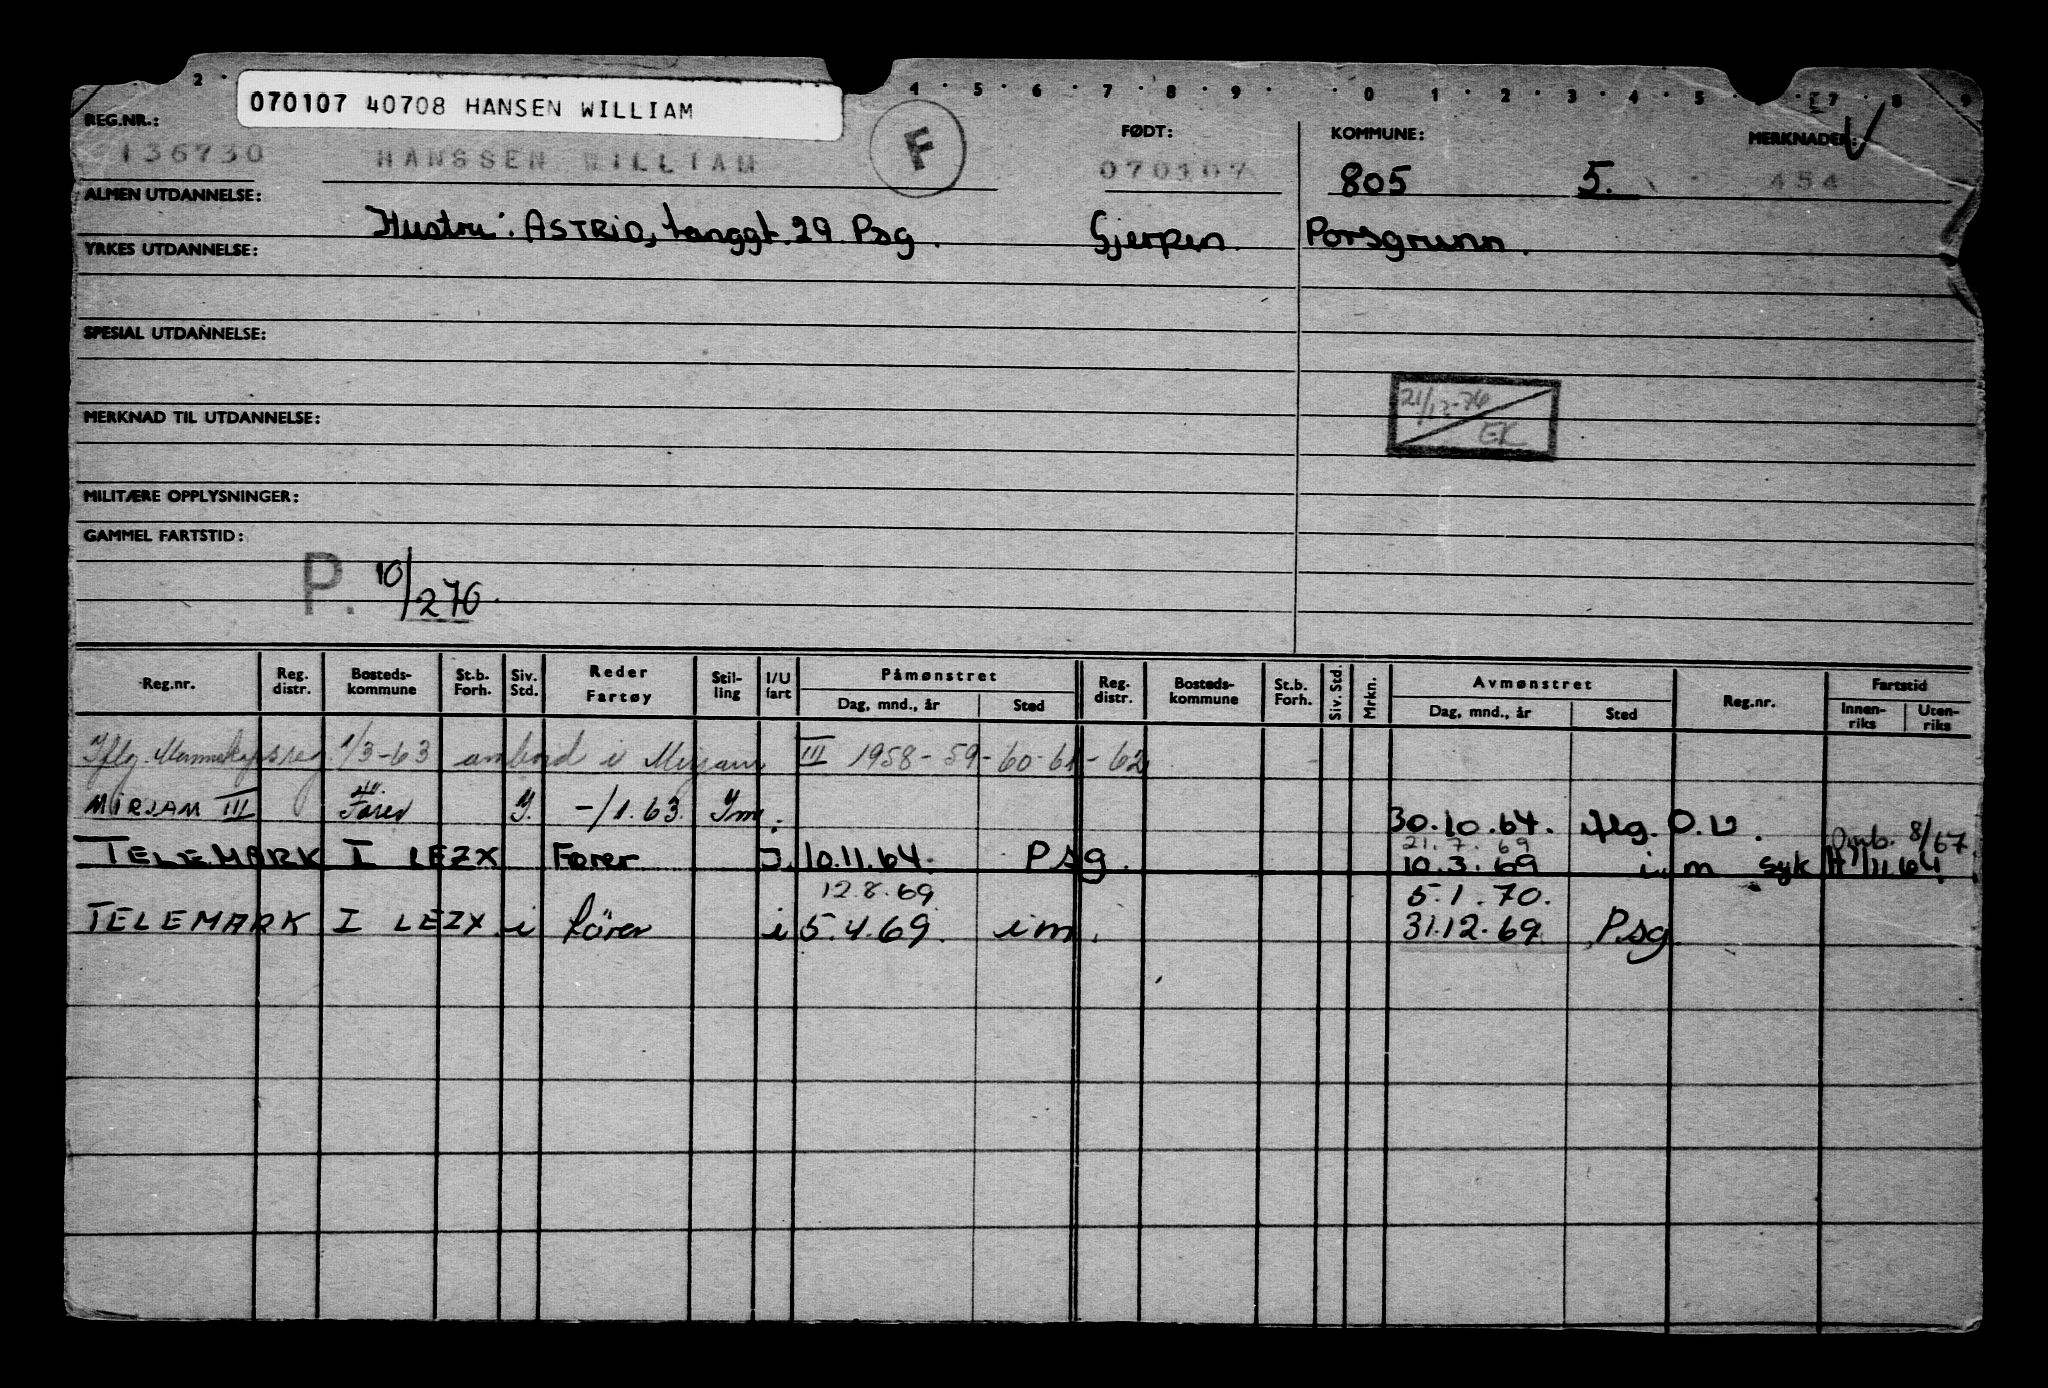 2 · 4 · 5 · 6 · 7 · 8 · 9 · · 0 · 1 · 2 · 3 · 4 · 5 7 8 9
070107 40708 HANSEN WILLIAM
REG.NR.: FØDT: KOMMUNE: MERKNADER:
136730 HANSSEN WILLIAM F 070107 805 5. 454
ALMEN UTDANNELSE:
Hustru: ASTRID, tanggt. 29. Psg. Gjerpen. Porsgrunn.
YRKES UTDANNELSE:
SPESIAL UTDANNELSE:
21/12-76
EK
MERKNAD TIL UTDANNELSE:
MILITÆRE OPPLYSNINGER:
GAMMEL FARTSTID:
P. 10/276.
Reg.nr. Reg. distr. Bosteds-kommune St.b. Forh. Siv. Std. Reder Fartøy Stil-ling I/U fart Påmønstret Dag, mnd., år Sted Reg. distr. Bosteds-kommune St.b. Forh. Siv. Std. Mrkn. Avmønstret Dag, mnd., år Sted Reg.nr. Fartstid Innen-riks Uten-riks
Iflg. Mannskapsreg 1/3-63 ombord i Mirjam III 1958-59-60-61-62
MIRJAM III Fører I. -/1.63. Im. 30.10.64. iflg. O.U.
21.7.69 Omb. 8/67
TELEMARK I LEZX Fører I. 10.11.64. Psg. 10.3.69 i. m syk 11.64.
12.8.69 5.1.70.
TELEMARK I LEZX i fører i 5.4.69. i m. 31.12.69 Psg.